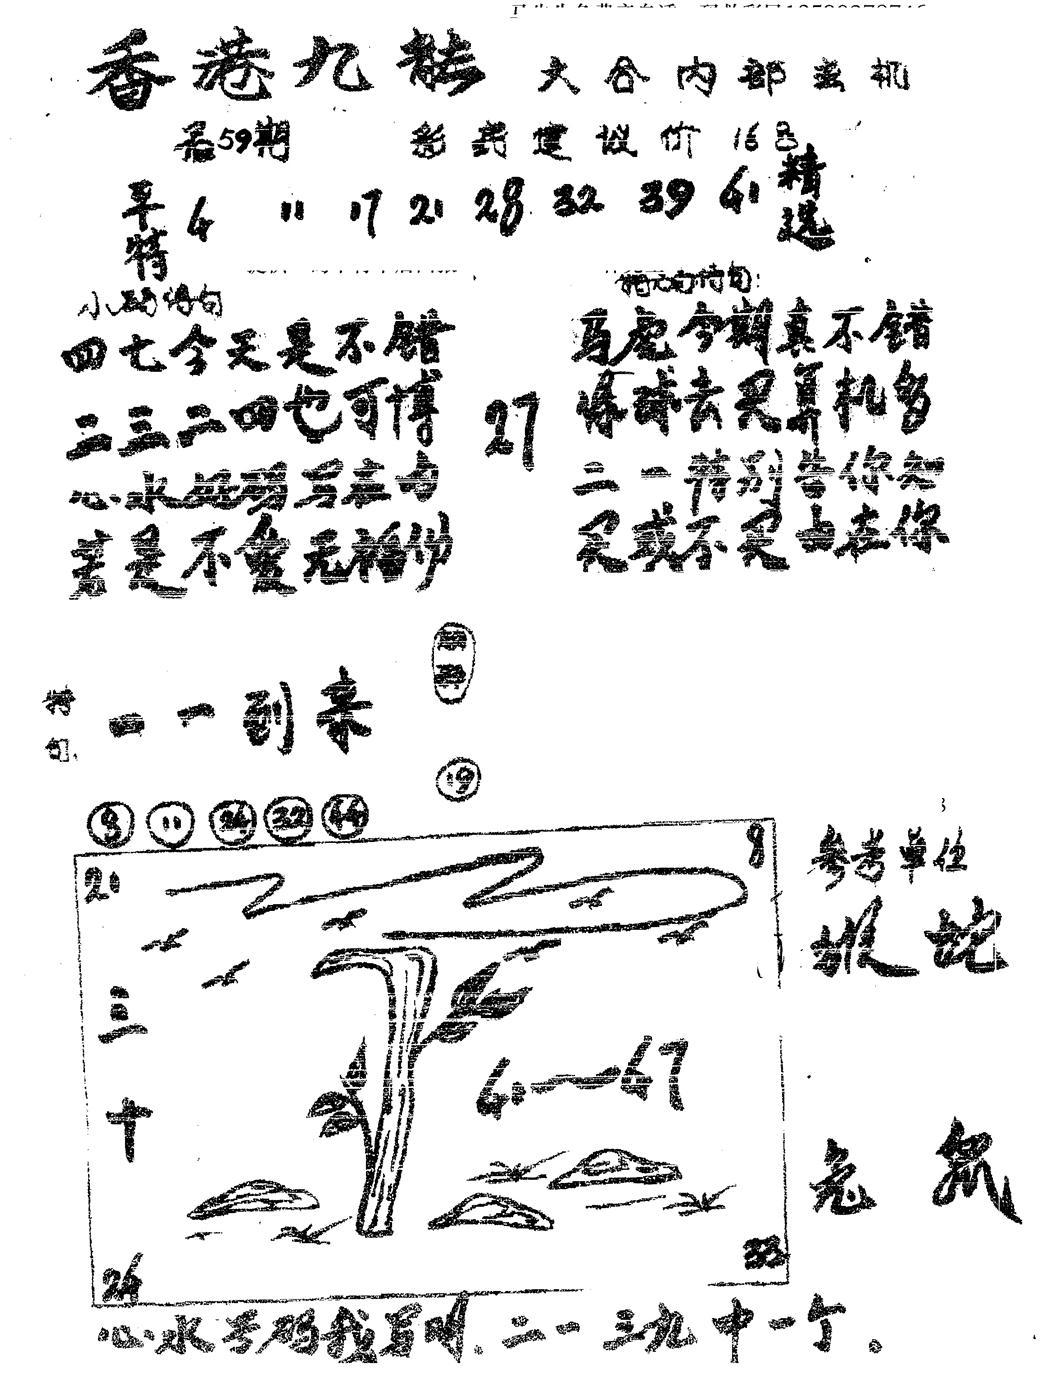 香港九龍 六合内部玄机
第59期 彩数建议价168
平特 4 11 17 21 28 32 39 41 精选
四七今天是不错
二三二四也可博
心水
若是不爱无福份
27
马虎今期真不错
去买算机多
二一特别告你知
买或不买由在你
特句
一一到来
19
8 11 24 32 44
21
8
三十
41—47
24
33
参考单位
猴 蛇
兔 鼠
心水号码我写明.二一三九中一个。